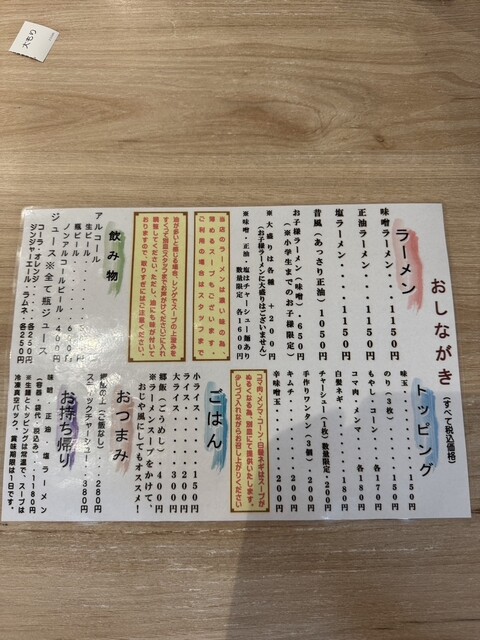 大もり
おしながき
(すべて税込価格)
ラーメン
味噌ラーメン・・・・1150円
正油ラーメン・・・・1150円
塩ラーメン・・・・・1150円
昔風(あっさり正油)1050円
お子様ラーメン(味噌)・650円
(※小学生までのお子様限定)
※大盛りは各種 +200円
(お子様ラーメンに大盛りはございません)
※味噌、正油、塩はチャーシュー麺あり
数量限定 各1600円
当店のラーメンは濃い味の為、
薄めるスープがございます。
ご利用の場合はスタッフまで
油が多いと感じる場合、レンゲでスープの上澄みを
すくって別皿のスタッフまでお声がけください
おりますので、取りすぎにはご注意ください。
飲み物
アルコール
生ビール
瓶ビール・・・・・600円
ノンアルコールビール 400円
ジュース※全て瓶ジュース
コーラ・オレンジ・・・各250円
ジンジャーエール・ラムネ・各250円
トッピング
味玉・・・・・・・150円
のり(3枚)・・・・150円
もやし、コーン・・各170円
コマ肉、メンマ・・各180円
白髪ネギ・・・・・180円
チャーシュー(1枚)数量限定・200円
手作りワンタン(3個)200円
キムチ・・・・・・200円
辛味噌玉・・・・・200円
コマ肉・メンマ・コーン・白髪ネギはスープが
ぬるくなる為、別皿にて提供いたします。
少しづつ入れながらお召し上がりください
ごはん
小ライス・・・・・150円
ライス・・・・・・200円
大ライス・・・・・300円
郷飯(ごうめし)・・400円
※ラーメンスープをかけて、
おじや風にしてもオススメ!
おつまみ
郷飯の上(ご飯なし)・280円
スティックチャーシュー・380円
お持ち帰り
味噌 正油 塩 ラーメン
(容器・袋代・税込み)・・1180円
※生麺とトッピングは常温で、スープは
冷凍真空パック、賞味期限は1日です。